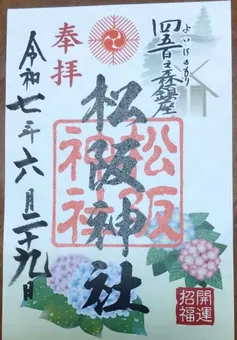 よいほのもり
四五百森鎮座
奉拝
松阪神社
松阪神社
令和七年六月二十九日
開運招福